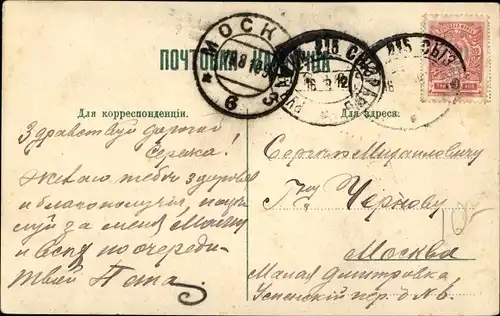 ПОЧТОВАЯ КАРТОЧКА
МОСКВА
6
Для корреспонденціи.
Для адреса:
Здравствуй дорогой
Сережа!
Желаю тебе здоровья
и благополучія, поцѣ
луй за меня Маню
и Всѣхъ по очереди
твой Папа.
Сергѣю Михаиловичу
Гну Чернову
Москва
Малая Дмитровка
Успенскій пер. д №6.
10-